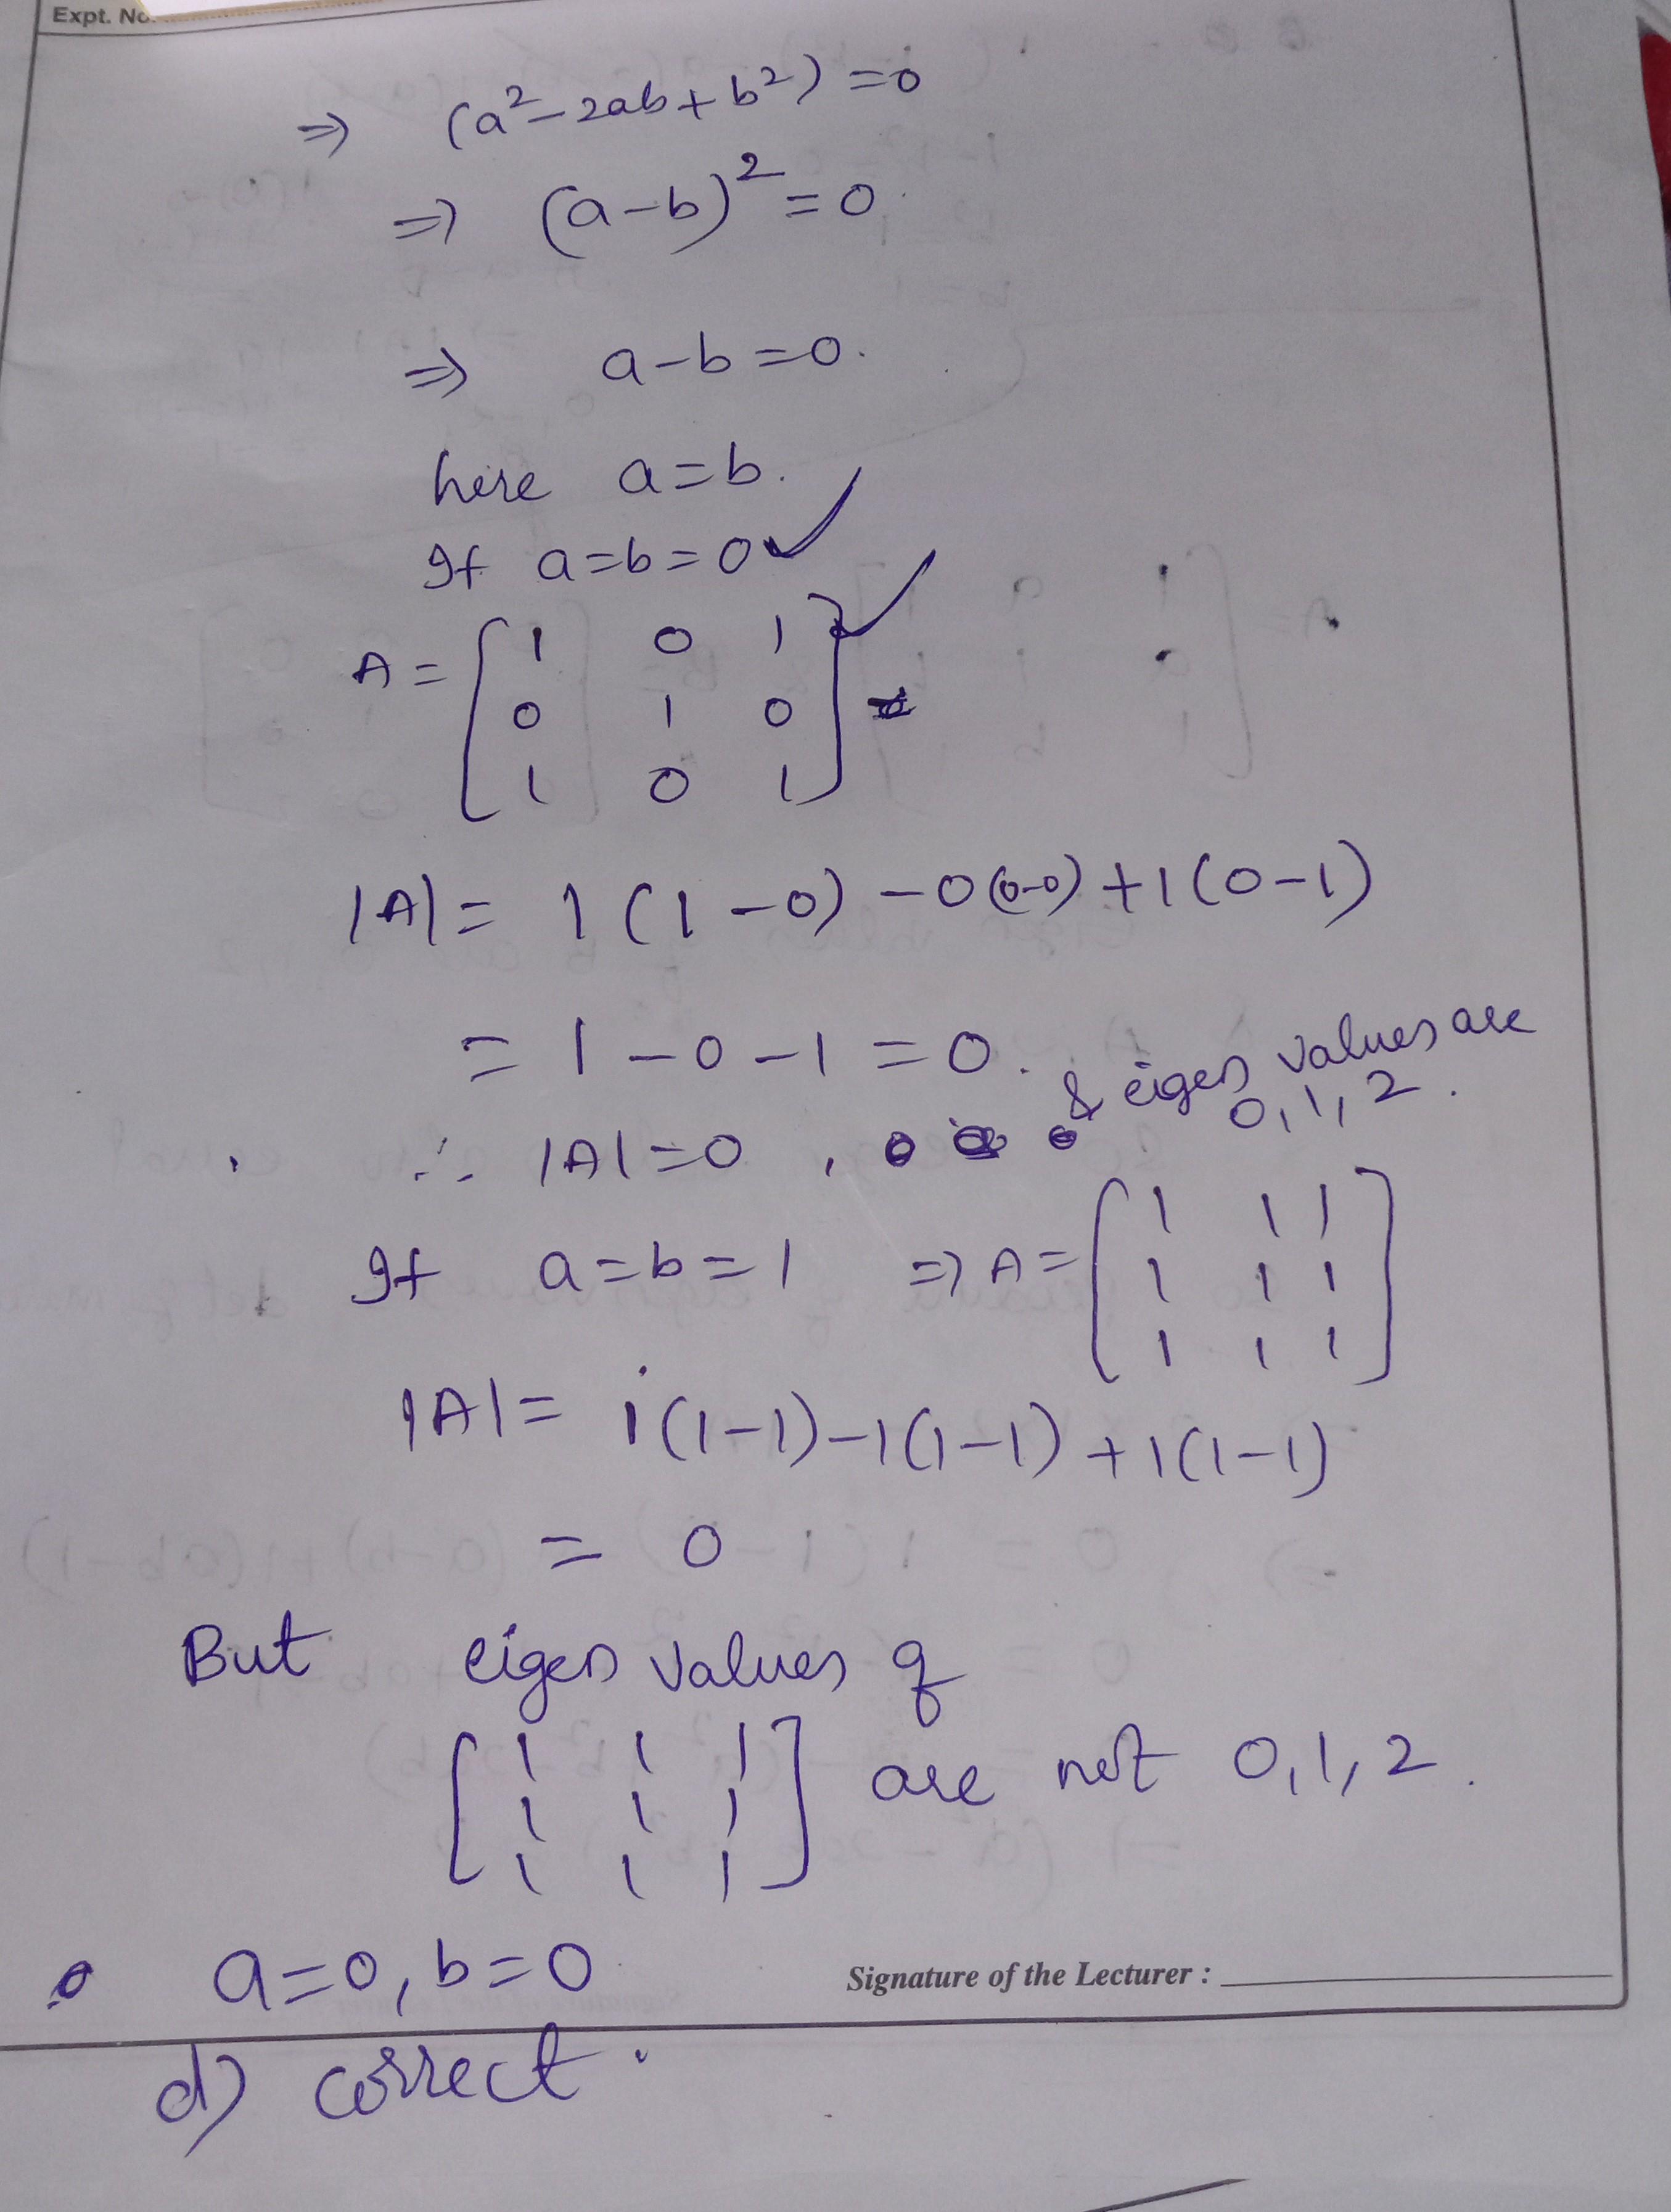 Expt. No.
⇒ (a²-2ab+b²)=0
⇒ (a-b)²=0.
⇒ a-b=0.
here a=b.
If a=b=0 ✓
A = [1 0 1 ✓
0 1 0
1 0 1]
|A| = 1(1-0)-0(0-0)+1(0-1)
= 1-0-1=0.
∴ |A|=0, & eigen values are
0,1,2.
If a=b=1 ⇒ A = [1 1 1
1 1 1
1 1 1]
|A| = 1(1-1)-1(1-1)+1(1-1)
= 0
But eigen values of
[1 1 1
1 1 1
1 1 1] are not 0,1,2.
a=0, b=0
Signature of the Lecturer :
d) correct.